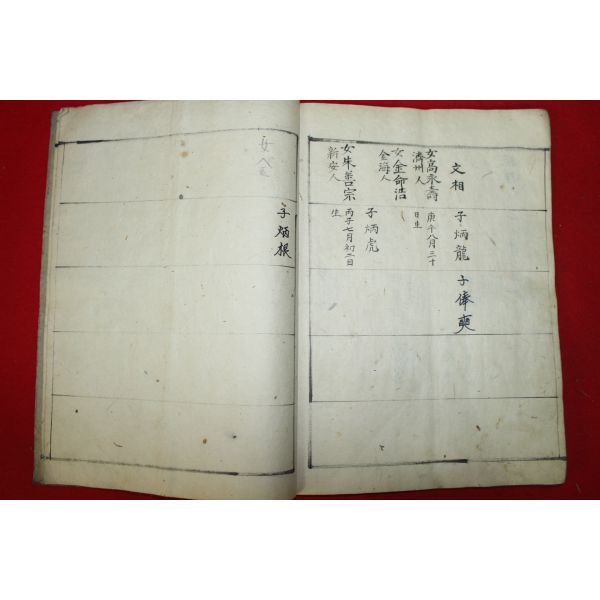 文相
女高永壽
濟州人
女金命浩
金海人
女朱善宗
新安人
子炳龍
庚午八月三十
日生
子炳虎
丙子七月初二日
生
子俸奭
子炳根